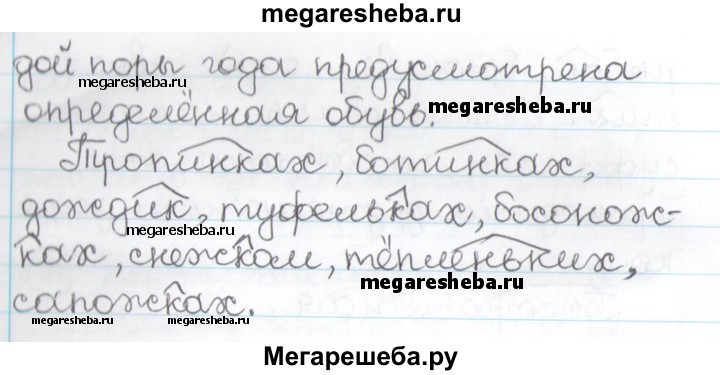 megaresheba.ru
дой поры года предусмотрена
megaresheba.ru
определённая обувь.
megaresheba.ru
Тропинках, ботинках,
дождик, туфельках, босонож-
megaresheba.ru
ках, снежком, тёпленьких,
megaresheba.ru
сапожках.
megaresheba.ru megaresheba.ru
Мегарешеба.ру